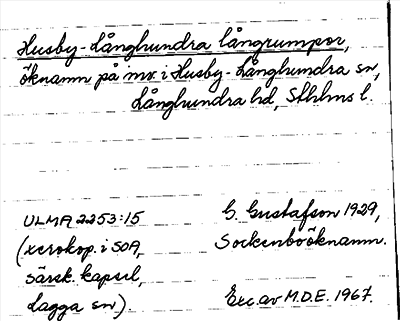 Husby-Långhundra långrumpor,
öknamn på inv. i Husby-Långhundra sn,
Långhundra hd, Sthlms l.
ULMA 2253:15
(xerokop. i SOA,
särsk. kapsel,
Lagga sn)
G. Gustafson 1929,
Sockenboöknamn.
Exc. av M.D.E. 1967.